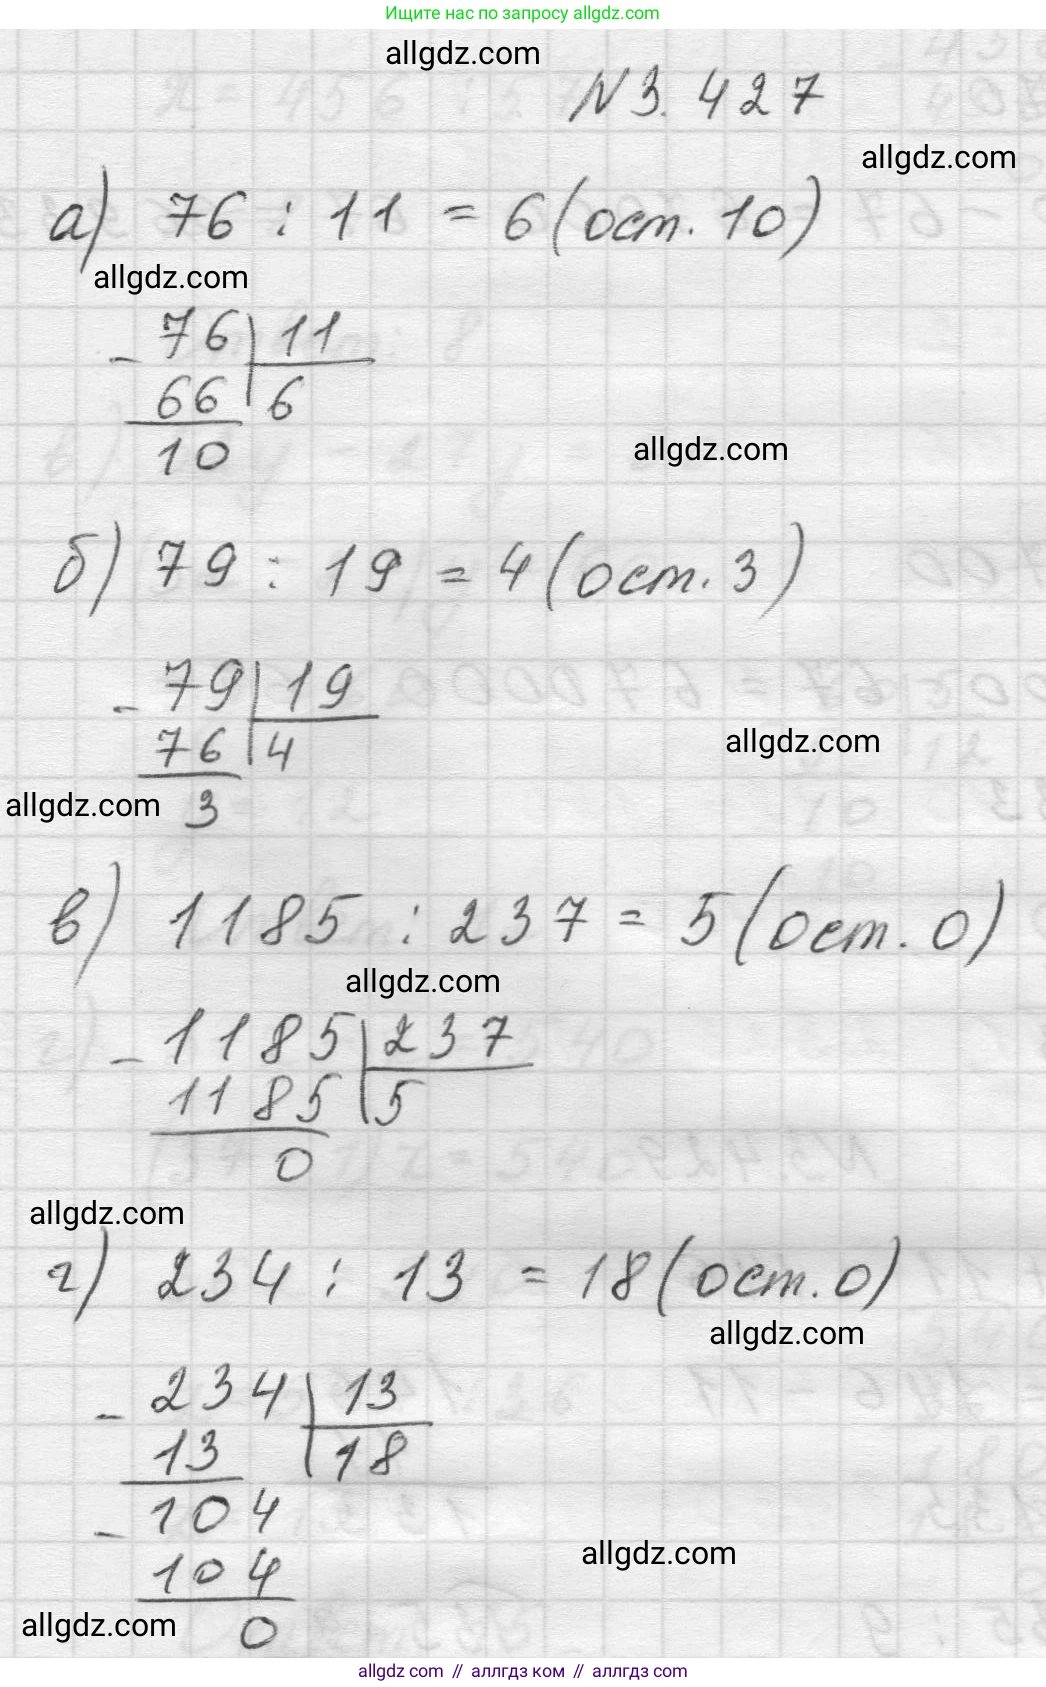 Ищите нас по запросу allgdz.com
allgdz.com
N 3.427
allgdz.com
а) 76 : 11 = 6 (ост. 10)
allgdz.com
- 76 | 11
66 | 6
10
allgdz.com
б) 79 : 19 = 4 (ост. 3)
- 79 | 19
76 | 4
allgdz.com
allgdz.com
3
в) 1185 : 237 = 5 (ост. 0)
allgdz.com
- 1185 | 237
1185 | 5
0
allgdz.com
г) 234 : 13 = 18 (ост. 0)
allgdz.com
- 234 | 13
13 | 18
- 104
104
allgdz.com
allgdz.com
0
allgdz.com // аллгдз ком // аллгдз.com